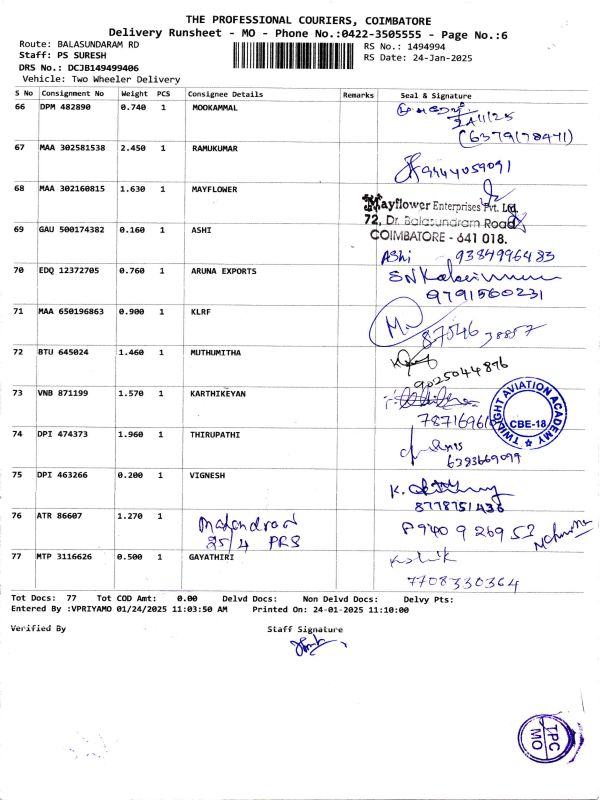 THE PROFESSIONAL COURIERS, COIMBATORE
Delivery Runsheet - MO - Phone No.:0422-3505555 - Page No.:6
Route: BALASUNDARAM RD
RS No.: 1494994
Staff: PS SURESH
RS Date: 24-Jan-2025
DRS No.: DCJB149499406
Vehicle: Two Wheeler Delivery
S No Consignment No Weight PCS Consignee Details Remarks Seal & Signature
66 DPM 482890 0.740 1 MOOKAMMAL
67 MAA 302581538 2.450 1 RAMUKUMAR
9444059091
68 MAA 302160815 1.630 1 MAYFLOWER
Mayflower Enterprises Pvt. Ltd.
72, Dr. Balasundram Road
COIMBATORE - 641 018.
69 GAU 500174382 0.160 1 ASHI
AShi 9384996483
70 EDQ 12372705 0.760 1 ARUNA EXPORTS
9791560231
71 MAA 650196863 0.900 1 KLRF
87546 38857
72 BTU 645024 1.460 1 MUTHUMITHA
9025044876
73 VNB 871199 1.570 1 KARTHIKEYAN
TWILIGHT AVIATION ACADEMY
CBE-18
74 DPI 474373 1.960 1 THIRUPATHI
6393669099
75 DPI 463266 0.200 1 VIGNESH
8778751436
76 ATR 86607 1.270 1
25/4 PRS
77 MTP 3116626 0.500 1 GAYATHIRI
7708330364
Tot Docs: 77 Tot COD Amt: 0.00 Delvd Docs: Non Delvd Docs: Delvy Pts:
Entered By :VPRIYAMO 01/24/2025 11:03:50 AM Printed On: 24-01-2025 11:10:00
Verified By Staff Signature
TPC
MO